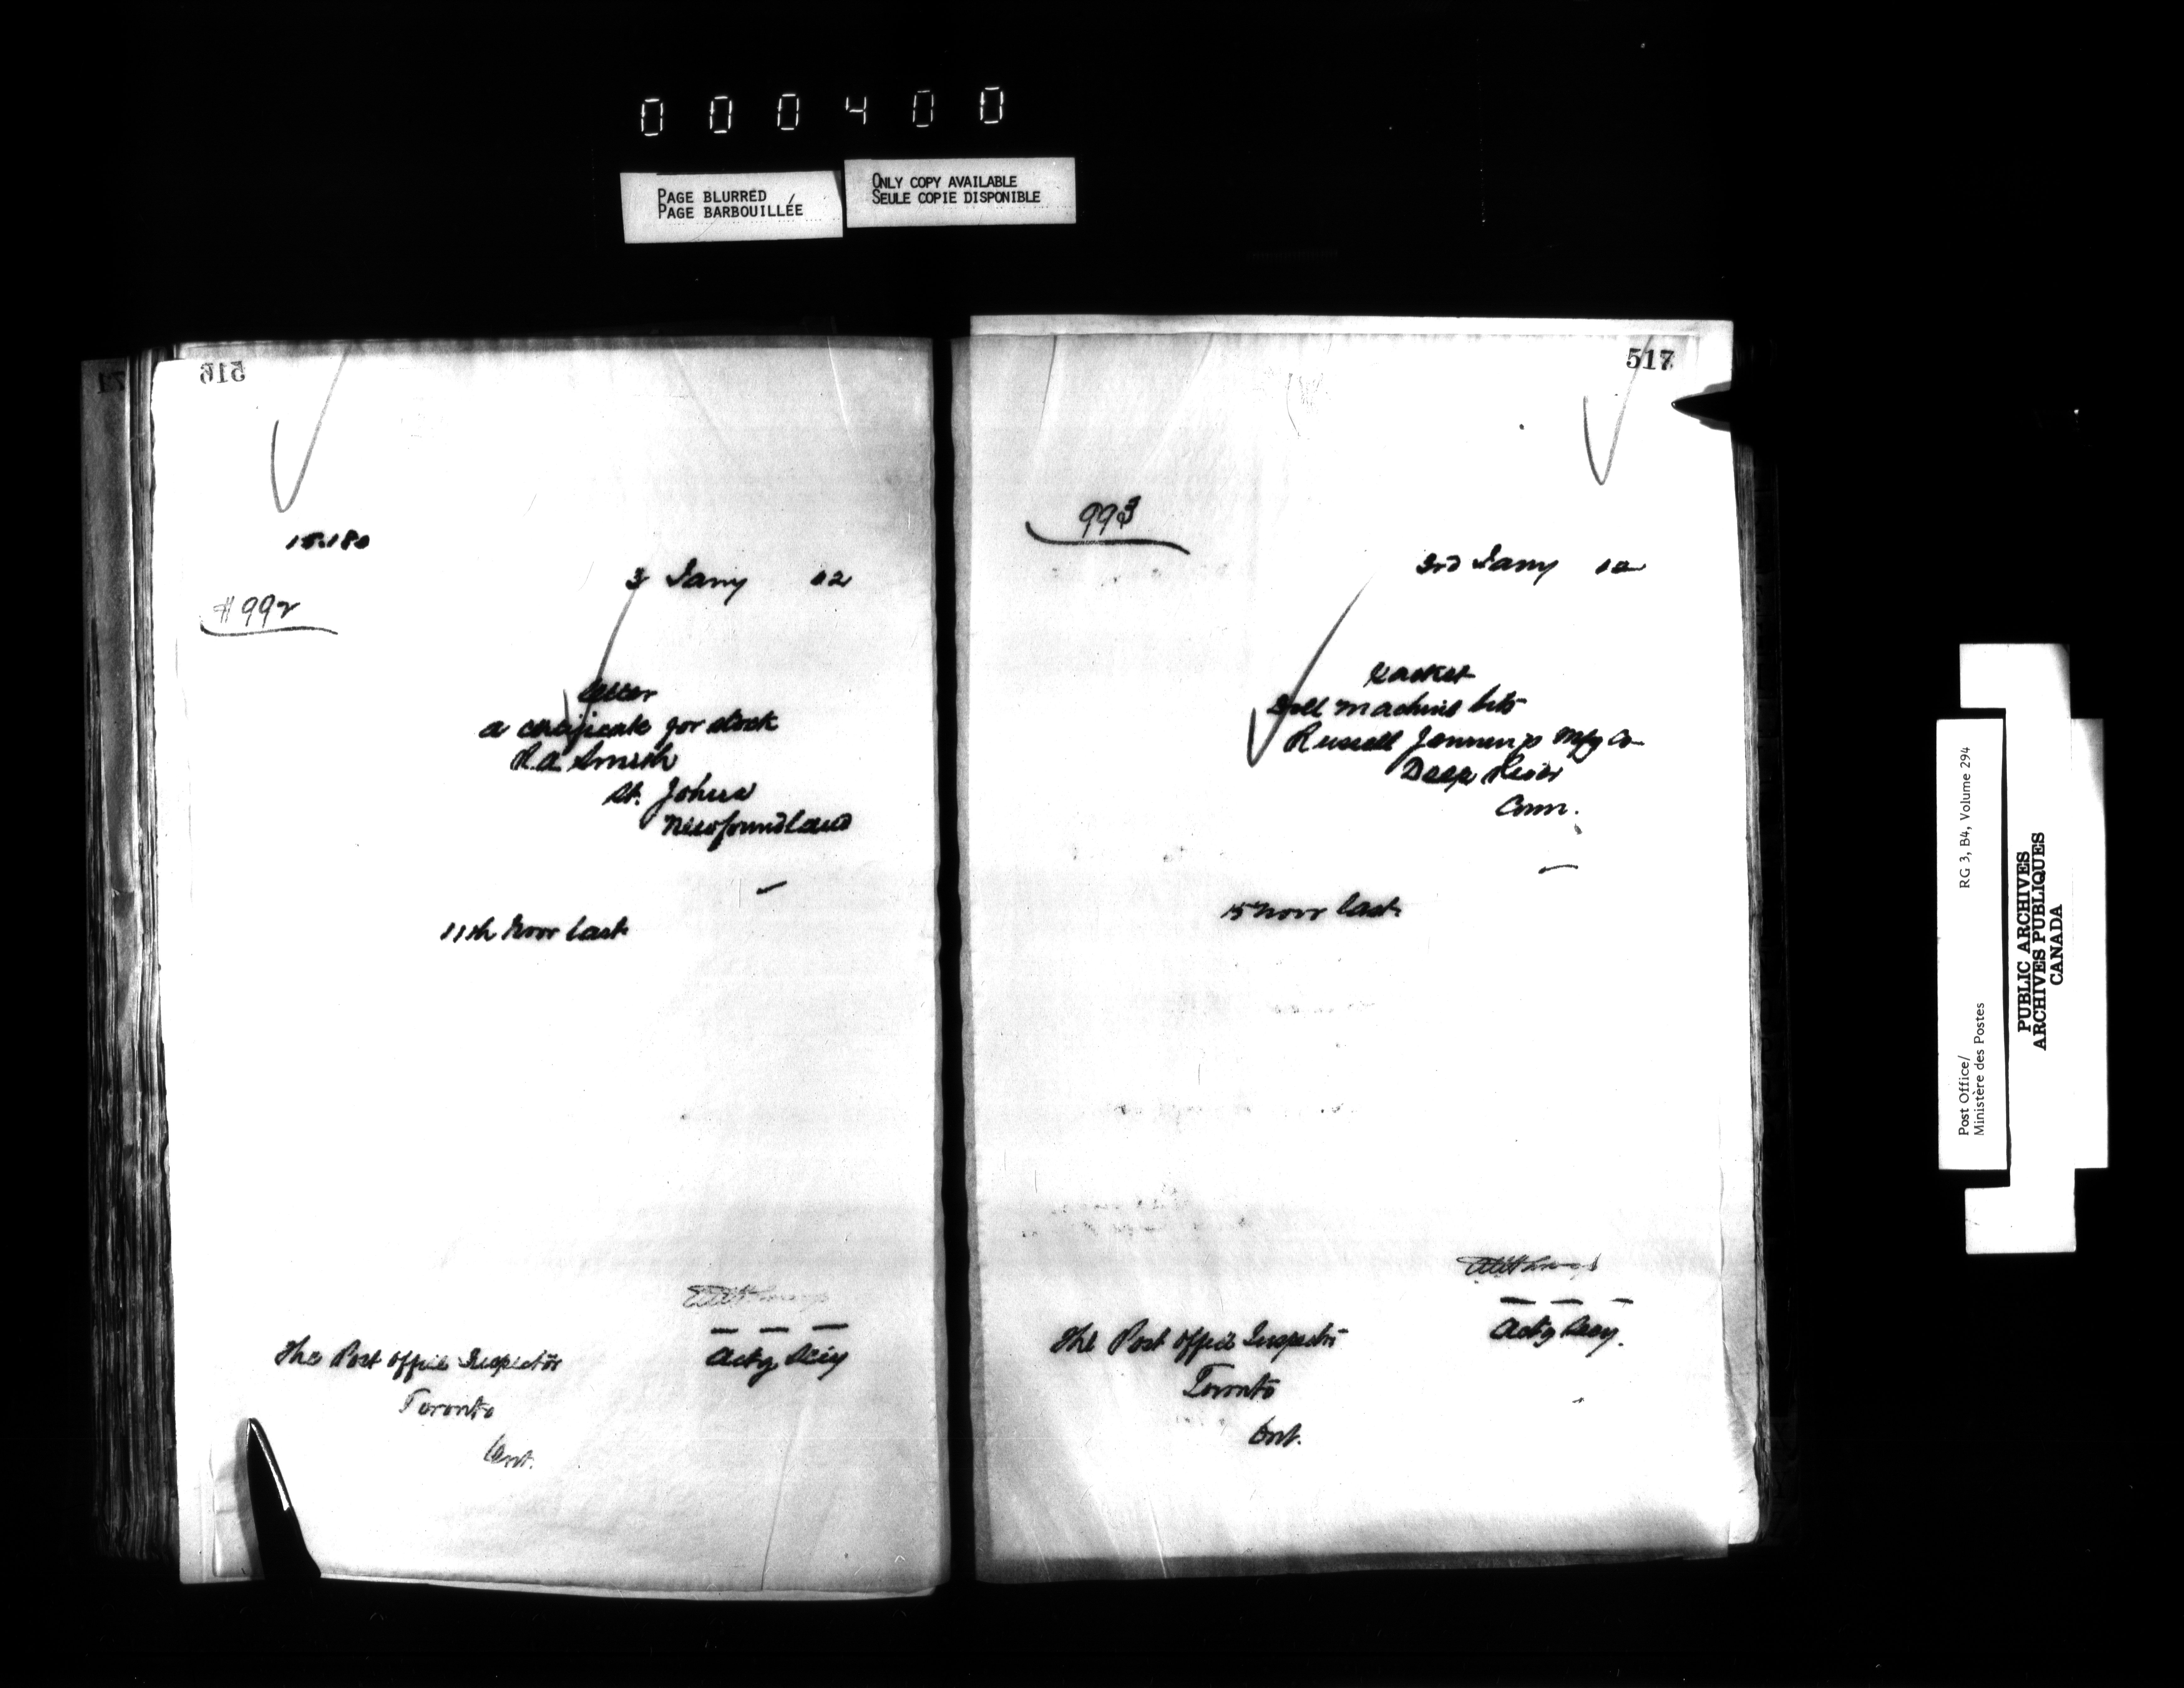 000400
PAGE BLURRED
PAGE BARBOUILLÉE
ONLY COPY AVAILABLE
SEULE COPIE DISPONIBLE
516
15.180
3 Jany 02
#992
Letter
a certificate for stock
R.A. Smith
St. Johns
Newfoundland
11th Novr last
The Post Office Inspector
Toronto
Ont.
Actg Secy
517
993
3rd Jany 02
Packet
Doll machine bits
Russell Jennings Mfg Co
Deep River
Conn.
15 Novr last
The Post Office Inspector
Toronto
Ont.
Actg Secy.
Post Office/
Ministère des Postes
RG 3, B4, Volume 294
PUBLIC ARCHIVES
ARCHIVES PUBLIQUES
CANADA